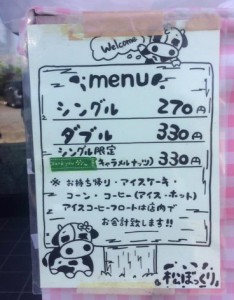 Welcome
menu
シングル 270円
ダブル 330円
シングル限定
(キャラメルナッツ) 330円
※お持ち帰り・アイスケーキ・
コーン・コーヒー(アイス・ホット)
アイスコーヒーフロートは店内で
お会計致します!!
松ぼっくり